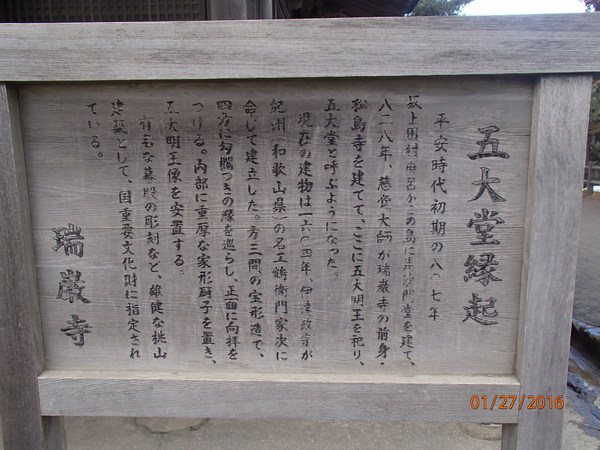 五大堂縁起
平安時代初期の八〇七年
坂上田村麻呂がこの島に毘沙門堂を建て、
八二八年、慈覚大師が瑞巌寺の前身・
松島寺を建てて、ここに五大明王を祀り、
五大堂と呼ぶようになった。
現在の建物は一六〇四年、伊達政宗が
紀州(和歌山県)の名工鶴衛門家次に
命して建立した。方三間の宝形造で、
四方に勾欄つきの縁を巡らし、正面に向拝を
つける。内部に重厚な家形厨子を置き、
五大明王像を安置する。
有名な蟇股の彫刻など、雄健な桃山
建築として、国重要文化財に指定され
ている。
瑞巌寺
01/27/2016